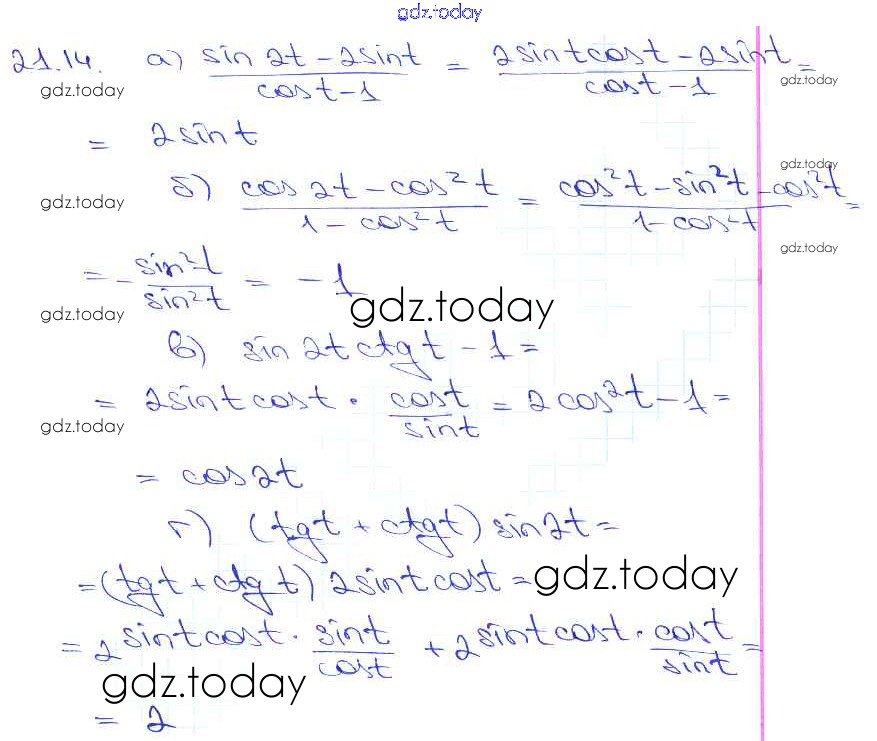 gdz.today
21.14. а) (sin 2t - 2sint)/(cost - 1) = (2sintcost - 2sint)/(cost - 1) =
gdz.today gdz.today
= 2sint
gdz.today
б) (cos 2t - cos²t)/(1 - cos²t) = (cos²t - sin²t - cos²t)/(1 - cos²t) =
gdz.today
gdz.today
= - sin²t/sin²t = -1
gdz.today gdz.today
в) sin 2t ctgt - 1 =
= 2sintcost · cost/sint = 2cos²t - 1 =
gdz.today
= cos2t
г) (tgt + ctgt) sin2t =
= (tgt + ctgt) 2sintcost =
gdz.today
= 2sintcost · sint/cost + 2sintcost · cost/sint =
gdz.today
= 2